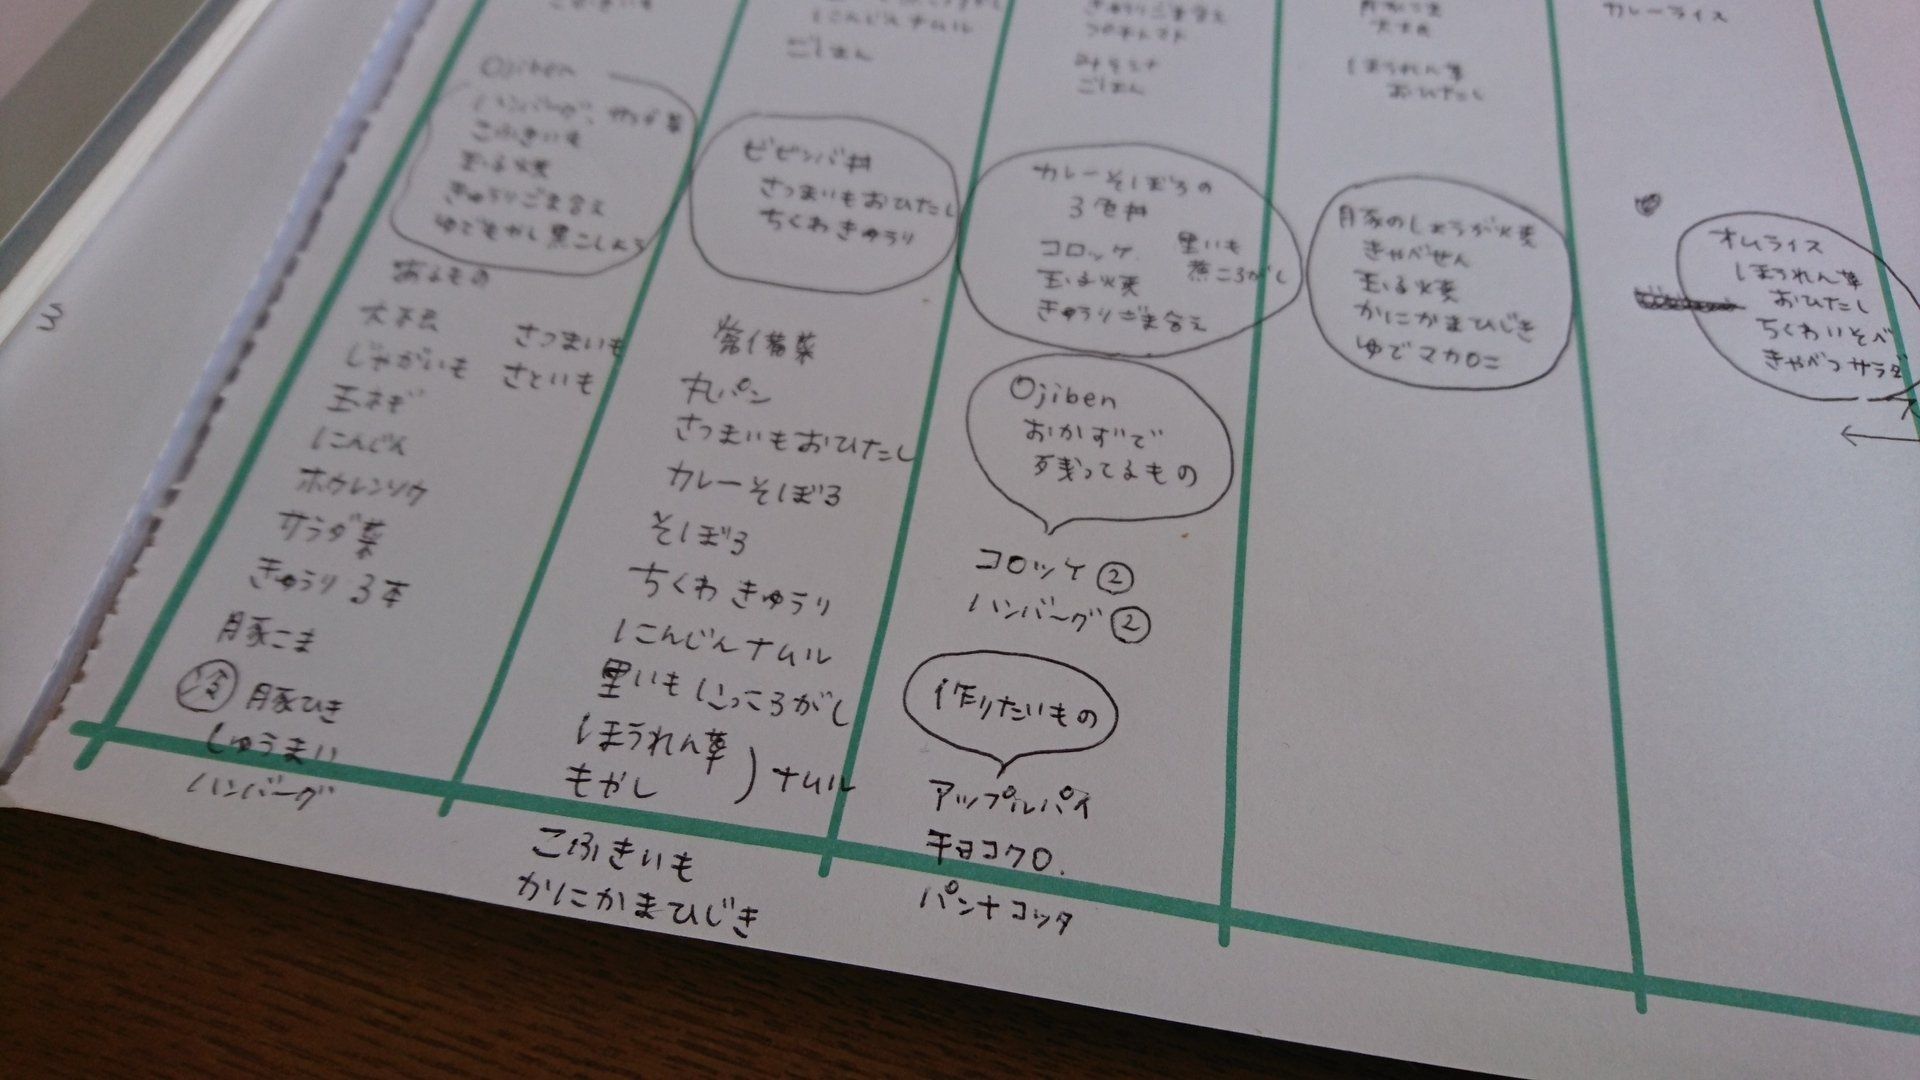 こふきいも
Ojiben
ハンバーグ、サラダ菜
こふきいも
玉子焼
きゅうりごま合え
ゆでもやし黒こしょう
あるもの
大根
じゃがいも
玉ネギ
にんじん
ホウレンソウ
サラダ菜
きゅうり 3本
豚こま
冷 豚ひき
しゅうまい
ハンバーグ
さつまいも
さといも
にんじんナムル
ごはん
ビビンバ丼
さつまいもおひたし
ちくわきゅうり
常備菜
丸パン
さつまいもおひたし
カレーそぼろ
そぼろ
ちくわ きゅうり
にんじんナムル
里いも にっころがし
ほうれん草
もやし
) ナムル
こふきいも
かにかまひじき
きゅうりごま合え
ごはん
カレーそぼろの
3色丼
コロッケ
玉子焼
きゅうりごま合え
里いも
煮ころがし
Ojiben
おかずで
残ってるもの
コロッケ ②
ハンバーグ ②
作りたいもの
アップルパイ
チョコクロ.
パンナコッタ
ほうれん草
おひたし
豚のしょうが焼
きゃべせん
玉子焼
かにかまひじき
ゆでマカロニ
カレーライス
オムライス
ほうれん草
おひたし
ちくわいそべ
きゃべつサラダ
3